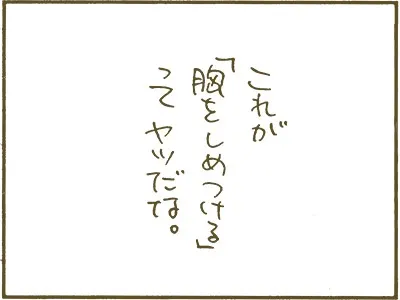 これが
「胸をしめつける」
って ヤツだな。